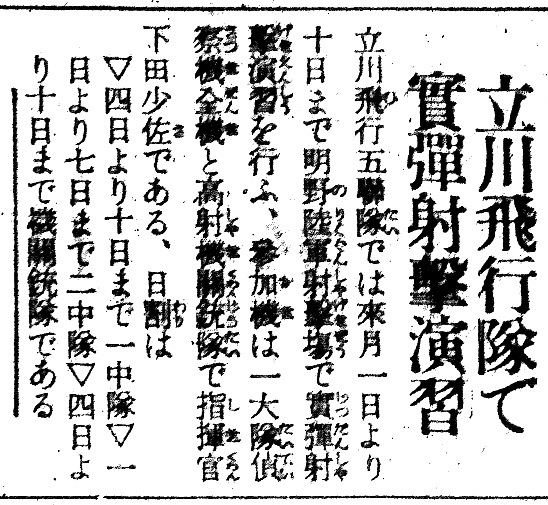 立川飛行隊で
實彈射擊演習
立川飛行五聯隊では來月一日より
十日まで明野陸軍射擊場で實彈射
擊演習を行ふ、參加機は一大隊偵
察機全機と高射機關銃隊で指揮官
下田少佐である、日割は
▽四日より十日まで一中隊▽一
日より七日まで二中隊▽四日よ
り十日まで機關銃隊である